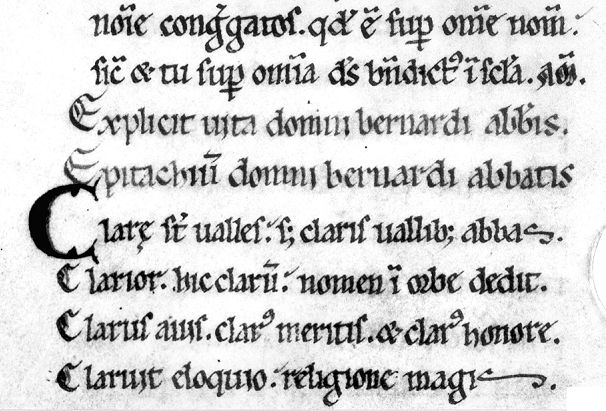 noı̄e congͣgatos. qđ ē suꝑ om̄e nom̄:
sic̄ & tu suꝑ om̄ia d̄s bn̄dict᷒ ī scl̄a. am̄.
Explicit uita domini bernardi abb̄is.
Epitachiū domini bernardi abbatis
Clarę st̄ ualles: s; claris uallib; abbas.
Clarior. hic clarū: nomen ī orbe dedit.
Clarus auis. clar᷒ meritis. & clar᷒ honore.
Claruit eloquio. religione magis.